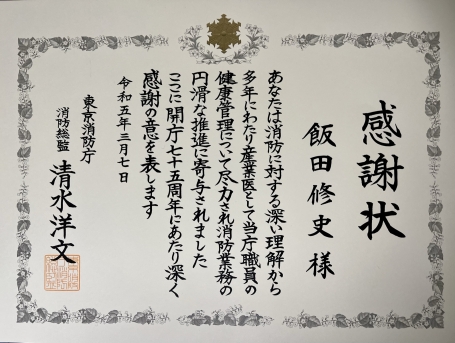 感謝状
飯田修史様
あなたは消防に対する深い理解から
多年にわたり産業医として当庁職員の
健康管理について尽力され消防業務の
円滑な推進に寄与されました
ここに開庁七十五周年にあたり深く
感謝の意を表します
令和五年三月七日
東京消防庁
消防総監 清水洋文